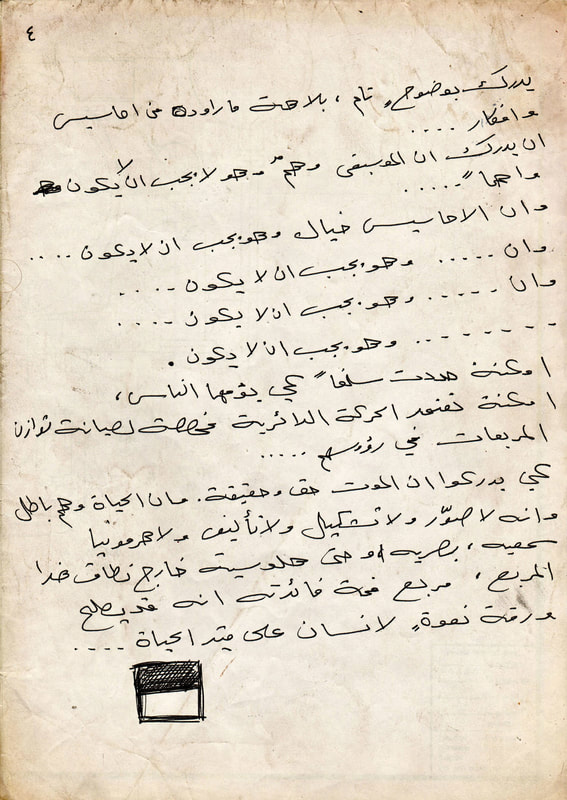 ٤
يدرك بوضوحٍ تام ، بلاهة ما راوده من احاسيس
وافكار ....
ان يدرك ان الموسيقى وهمٌ وهو لا يجب ان لا يكون
واهماً .....
وان الاحاسيس خيال وهو يجب ان لا يكون ....
وان ..... وهو يجب ان لا يكون ....
وان ..... وهو يجب ان لا يكون ....
........ وهو يجب ان لا يكون .
امكنة حددت سلفاً كي يؤمها الناس ،
امكنة تعتمد الحركة الدائرية مخصصة لصيانة توازن
المربعات في رؤوسهم .....
كي يدركوا ان الموت حق وحقيقة. وان الحياة وهم باطل
وانه لا صوّر ولا تشكيل ولا تأليف ولا هرمونيا
سمعيه ، بصريه او حتى هلوسية خارج نطاق هذا
المربع ، مربع قمة فائدته انه قد يصلح
ورقة نعوةٍ لانسان على قيد الحياة ....